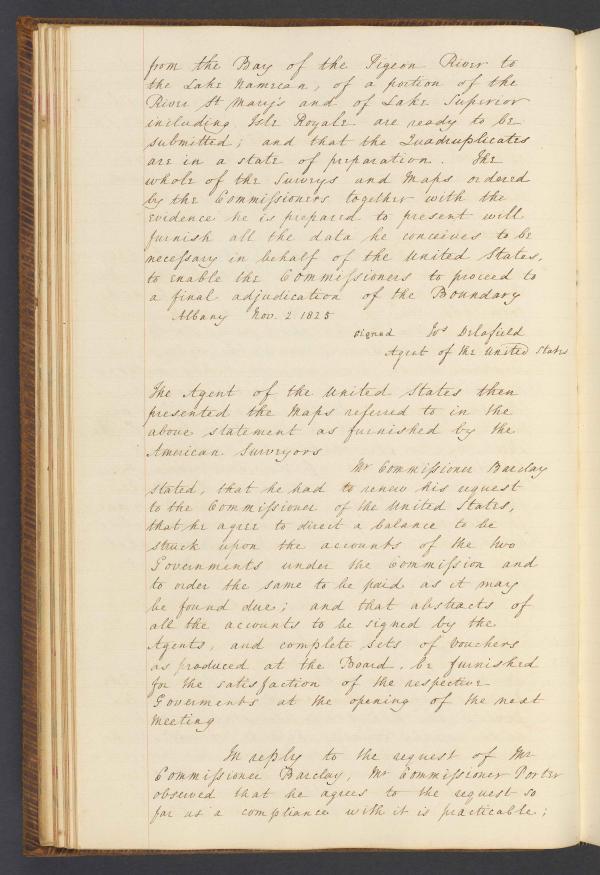 from the Bay of the Pigeon River to
the Lake Namecan, of a portion of the
River St Mary's and of Lake Superior
including Isle Royale are ready to be
submitted; and that the Quadruplicates
are in a state of preparation. The
whole of the Surveys and Maps ordered
by the Commissioners together with the
evidence he is prepared to present will
furnish all the data he conceives to be
necessary in behalf of the United States,
to enable the Commissioners to proceed to
a final adjudication of the Boundary
Albany Nov. 2 1825
signed Delafield
Agent of the United States
The Agent of the United States then
presented the Maps referred to in the
above statement as furnished by the
American Surveyors
Mr Commissioner Barclay
stated, that he had to renew his request
to the Commissioner of the United States,
that he agree to direct a balance to be
struck upon the accounts of the two
Governments under the Commission and
to order the same to be paid as it may
be found due; and that abstracts of
all the accounts to be signed by the
Agents, and complete sets of Vouchers
as produced at the Board, be furnished
for the satisfaction of the respective
Goverments at the opening of the next
meeting
In reply to the request of Mr
Commissioner Barclay, Mr Commissioner Porter
observed that he agrees to the request so
far as a compliance with it is practicable;